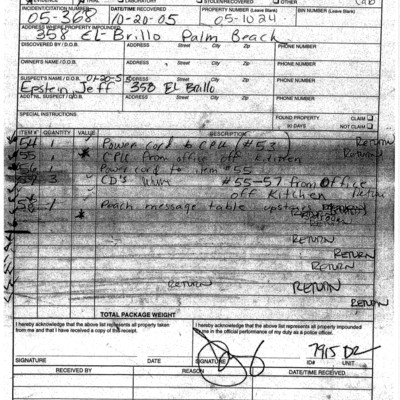 INCIDENT/CITATION NUMBER DATE/TIME RECOVERED PROPERTY NUMBER (Leave Blank) BIN NUMBER (Leave Blank)
05-368 10-20-05 05-1024
ADDRESS WHERE PROPERTY IMPOUNDED
358 El-Brillo Palm Beach
DISCOVERED BY / D.O.B. ADDRESS Street City Zip PHONE NUMBER
OWNER'S NAME / D.O.B. ADDRESS Street City Zip PHONE NUMBER
SUSPECT'S NAME / D.O.B. ADDRESS Street City Zip PHONE NUMBER
Epstein, Jeff 358 El Brillo
ADDTNL. SUSPECT / D.O.B. ADDRESS Street City Zip PHONE NUMBER
SPECIAL INSTRUCTIONS: FOUND PROPERTY CLAIM
90 DAYS NOT CLAIM
ITEM # QUANTITY VALUE DESCRIPTION
54 1 Power cord to CPU #53 RETURN
55 CPU from office off kitchen RETURN
56 1 Power cord to item #55
57 3 CD's #55-57 from Office
off Kitchen RETURN
58 1 Peach message table upstairs
RETURN
RETURN
RETURN
RETURN RETURN
RETURN
TOTAL PACKAGE WEIGHT
I hereby acknowledge that the above list represents all property taken
from me and that I have received a copy of this receipt.
I hereby acknowledge that the above list represents all property impounded
by me in the official performance of my duty as a police officer.
7915
SIGNATURE DATE SIGNATURE ID# UNIT
RECEIVED BY REASON DATE/TIME RECEIVED